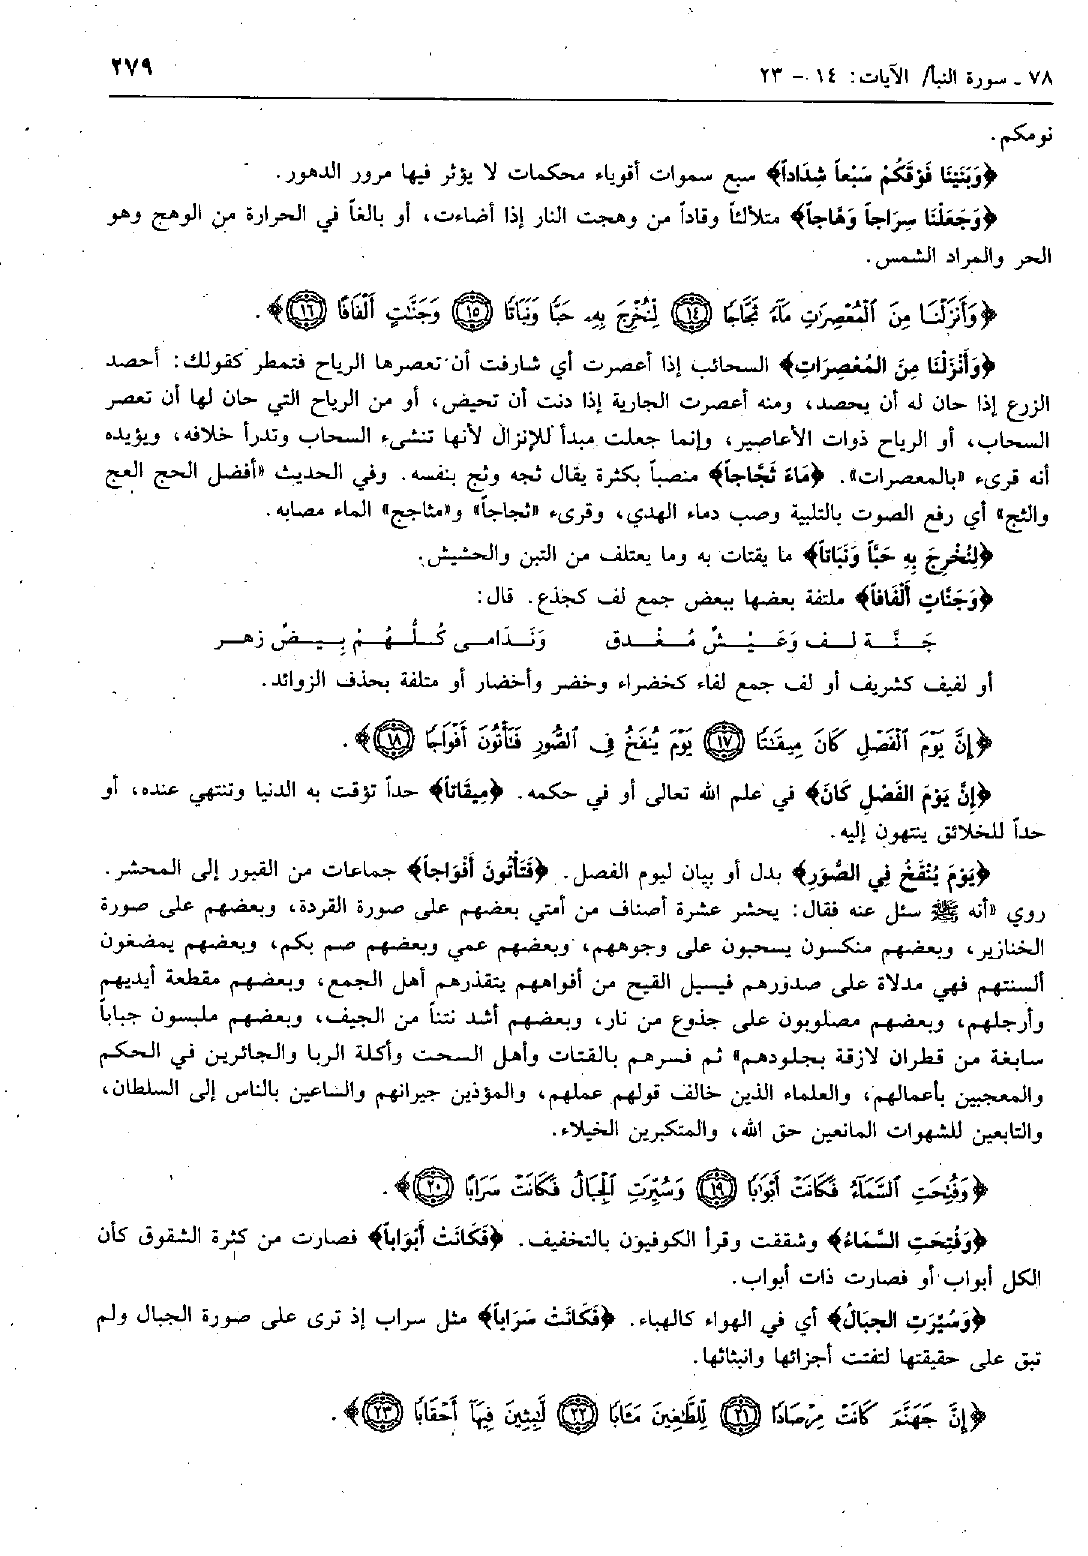 ٧٨ ـ سورة النبأ/ الآيات: ١٤ - ٢٣
٢٧٩
نومكم.
﴿وَبَنَيْنَا فَوْقَكُمْ سَبْعاً شِدَاداً﴾ سبع سموات أقوياء محكمات لا يؤثر فيها مرور الدهور.
﴿وَجَعَلْنَا سِرَاجاً وَهَّاجاً﴾ متلألئاً وقاداً من وهجت النار إذا أضاءت، أو بالغاً في الحرارة من الوهج وهو
الحر والمراد الشمس.
﴿وَأَنزَلْنَا مِنَ ٱلْمُعْصِرَٰتِ مَآءً ثَجَّاجًا ﴿١٤﴾ لِّنُخْرِجَ بِهِۦ حَبًّا وَنَبَاتًا ﴿١٥﴾ وَجَنَّٰتٍ أَلْفَافًا ﴿١٦﴾﴾.
﴿وَأَنْزَلْنَا مِنَ المُعْصِرَاتِ﴾ السحائب إذا أعصرت أي شارفت أن تعصرها الرياح فتمطر كقولك: أحصد
الزرع إذا حان له أن يحصد، ومنه أعصرت الجارية إذا دنت أن تحيض، أو من الرياح التي حان لها أن تعصر
السحاب، أو الرياح ذوات الأعاصير، وإنما جعلت مبدأ للإنزال لأنها تنشىء السحاب وتدرأ خلافه، ويؤيده
أنه قرىء «بالمعصرات». ﴿مَاءً ثَجَّاجاً﴾ منصباً بكثرة يقال ثجه وثج بنفسه. وفي الحديث «أفضل الحج العج
والثج» أي رفع الصوت بالتلبية وصب دماء الهدي، وقرىء «ثجاجاً» و«مثاجج» الماء مصابه.
﴿لِنُخْرِجَ بِهِ حَبًّا وَنَبَاتاً﴾ ما يقتات به وما يعتلف من التبن والحشيش.
﴿وَجَنَّاتٍ أَلْفَافاً﴾ ملتفة بعضها ببعض جمع لف كجذع. قال:
جَنَّة لف وَعَيْشٌ مُغْدق وَنَدَامى كُلُّهُمْ بِيضٌ زهر
أو لفيف كشريف أو لف جمع لفاء كخضراء وخضر وأخضار أو متلفة بحذف الزوائد.
﴿إِنَّ يَوْمَ ٱلْفَصْلِ كَانَ مِيقَٰتًا ﴿١٧﴾ يَوْمَ يُنفَخُ فِى ٱلصُّورِ فَتَأْتُونَ أَفْوَاجًا ﴿١٨﴾﴾.
﴿إِنَّ يَوْمَ الفَصْلِ كَانَ﴾ في علم الله تعالى أو في حكمه. ﴿مِيقَاتاً﴾ حداً تؤقت به الدنيا وتنتهي عنده، أو
حداً للخلائق ينتهون إليه.
﴿يَوْمَ يُنْفَخُ فِي الصُّوَرِ﴾ بدل أو بيان ليوم الفصل. ﴿فَتَأْتُونَ أَفْوَاجاً﴾ جماعات من القبور إلى المحشر.
روي «أنه ﷺ سئل عنه فقال: يحشر عشرة أصناف من أمتي بعضهم على صورة القردة، وبعضهم على صورة
الخنازير، وبعضهم منكسون يسحبون على وجوههم، وبعضهم عمي وبعضهم صم بكم، وبعضهم يمضغون
ألسنتهم فهي مدلاة على صدورهم فيسيل القيح من أفواههم يتقذرهم أهل الجمع، وبعضهم مقطعة أيديهم
وأرجلهم، وبعضهم مصلوبون على جذوع من نار، وبعضهم أشد نتناً من الجيف، وبعضهم ملبسون جباباً
سابغة من قطران لازقة بجلودهم» ثم فسرهم بالقتات وأهل السحت وأكلة الربا والجائرين في الحكم
والمعجبين بأعمالهم، والعلماء الذين خالف قولهم عملهم، والمؤذين جيرانهم والساعين بالناس إلى السلطان،
والتابعين للشهوات المانعين حق الله، والمتكبرين الخيلاء.
﴿وَفُتِحَتِ ٱلسَّمَآءُ فَكَانَتْ أَبْوَٰبًا ﴿١٩﴾ وَسُيِّرَتِ ٱلْجِبَالُ فَكَانَتْ سَرَابًا ﴿٢٠﴾﴾.
﴿وَفُتِحَتِ السَّمَاءُ﴾ وشققت وقرأ الكوفيون بالتخفيف. ﴿فَكَانَتْ أَبْوَاباً﴾ فصارت من كثرة الشقوق كأن
الكل أبواب أو فصارت ذات أبواب.
﴿وَسُيِّرَتِ الجِبَالُ﴾ أي في الهواء كالهباء. ﴿فَكَانَتْ سَرَاباً﴾ مثل سراب إذ ترى على صورة الجبال ولم
تبق على حقيقتها لتفتت أجزائها وانبثاثها.
﴿إِنَّ جَهَنَّمَ كَانَتْ مِرْصَادًا ﴿٢١﴾ لِّلطَّٰغِينَ مَـَٔابًا ﴿٢٢﴾ لَّٰبِثِينَ فِيهَآ أَحْقَابًا ﴿٢٣﴾﴾.